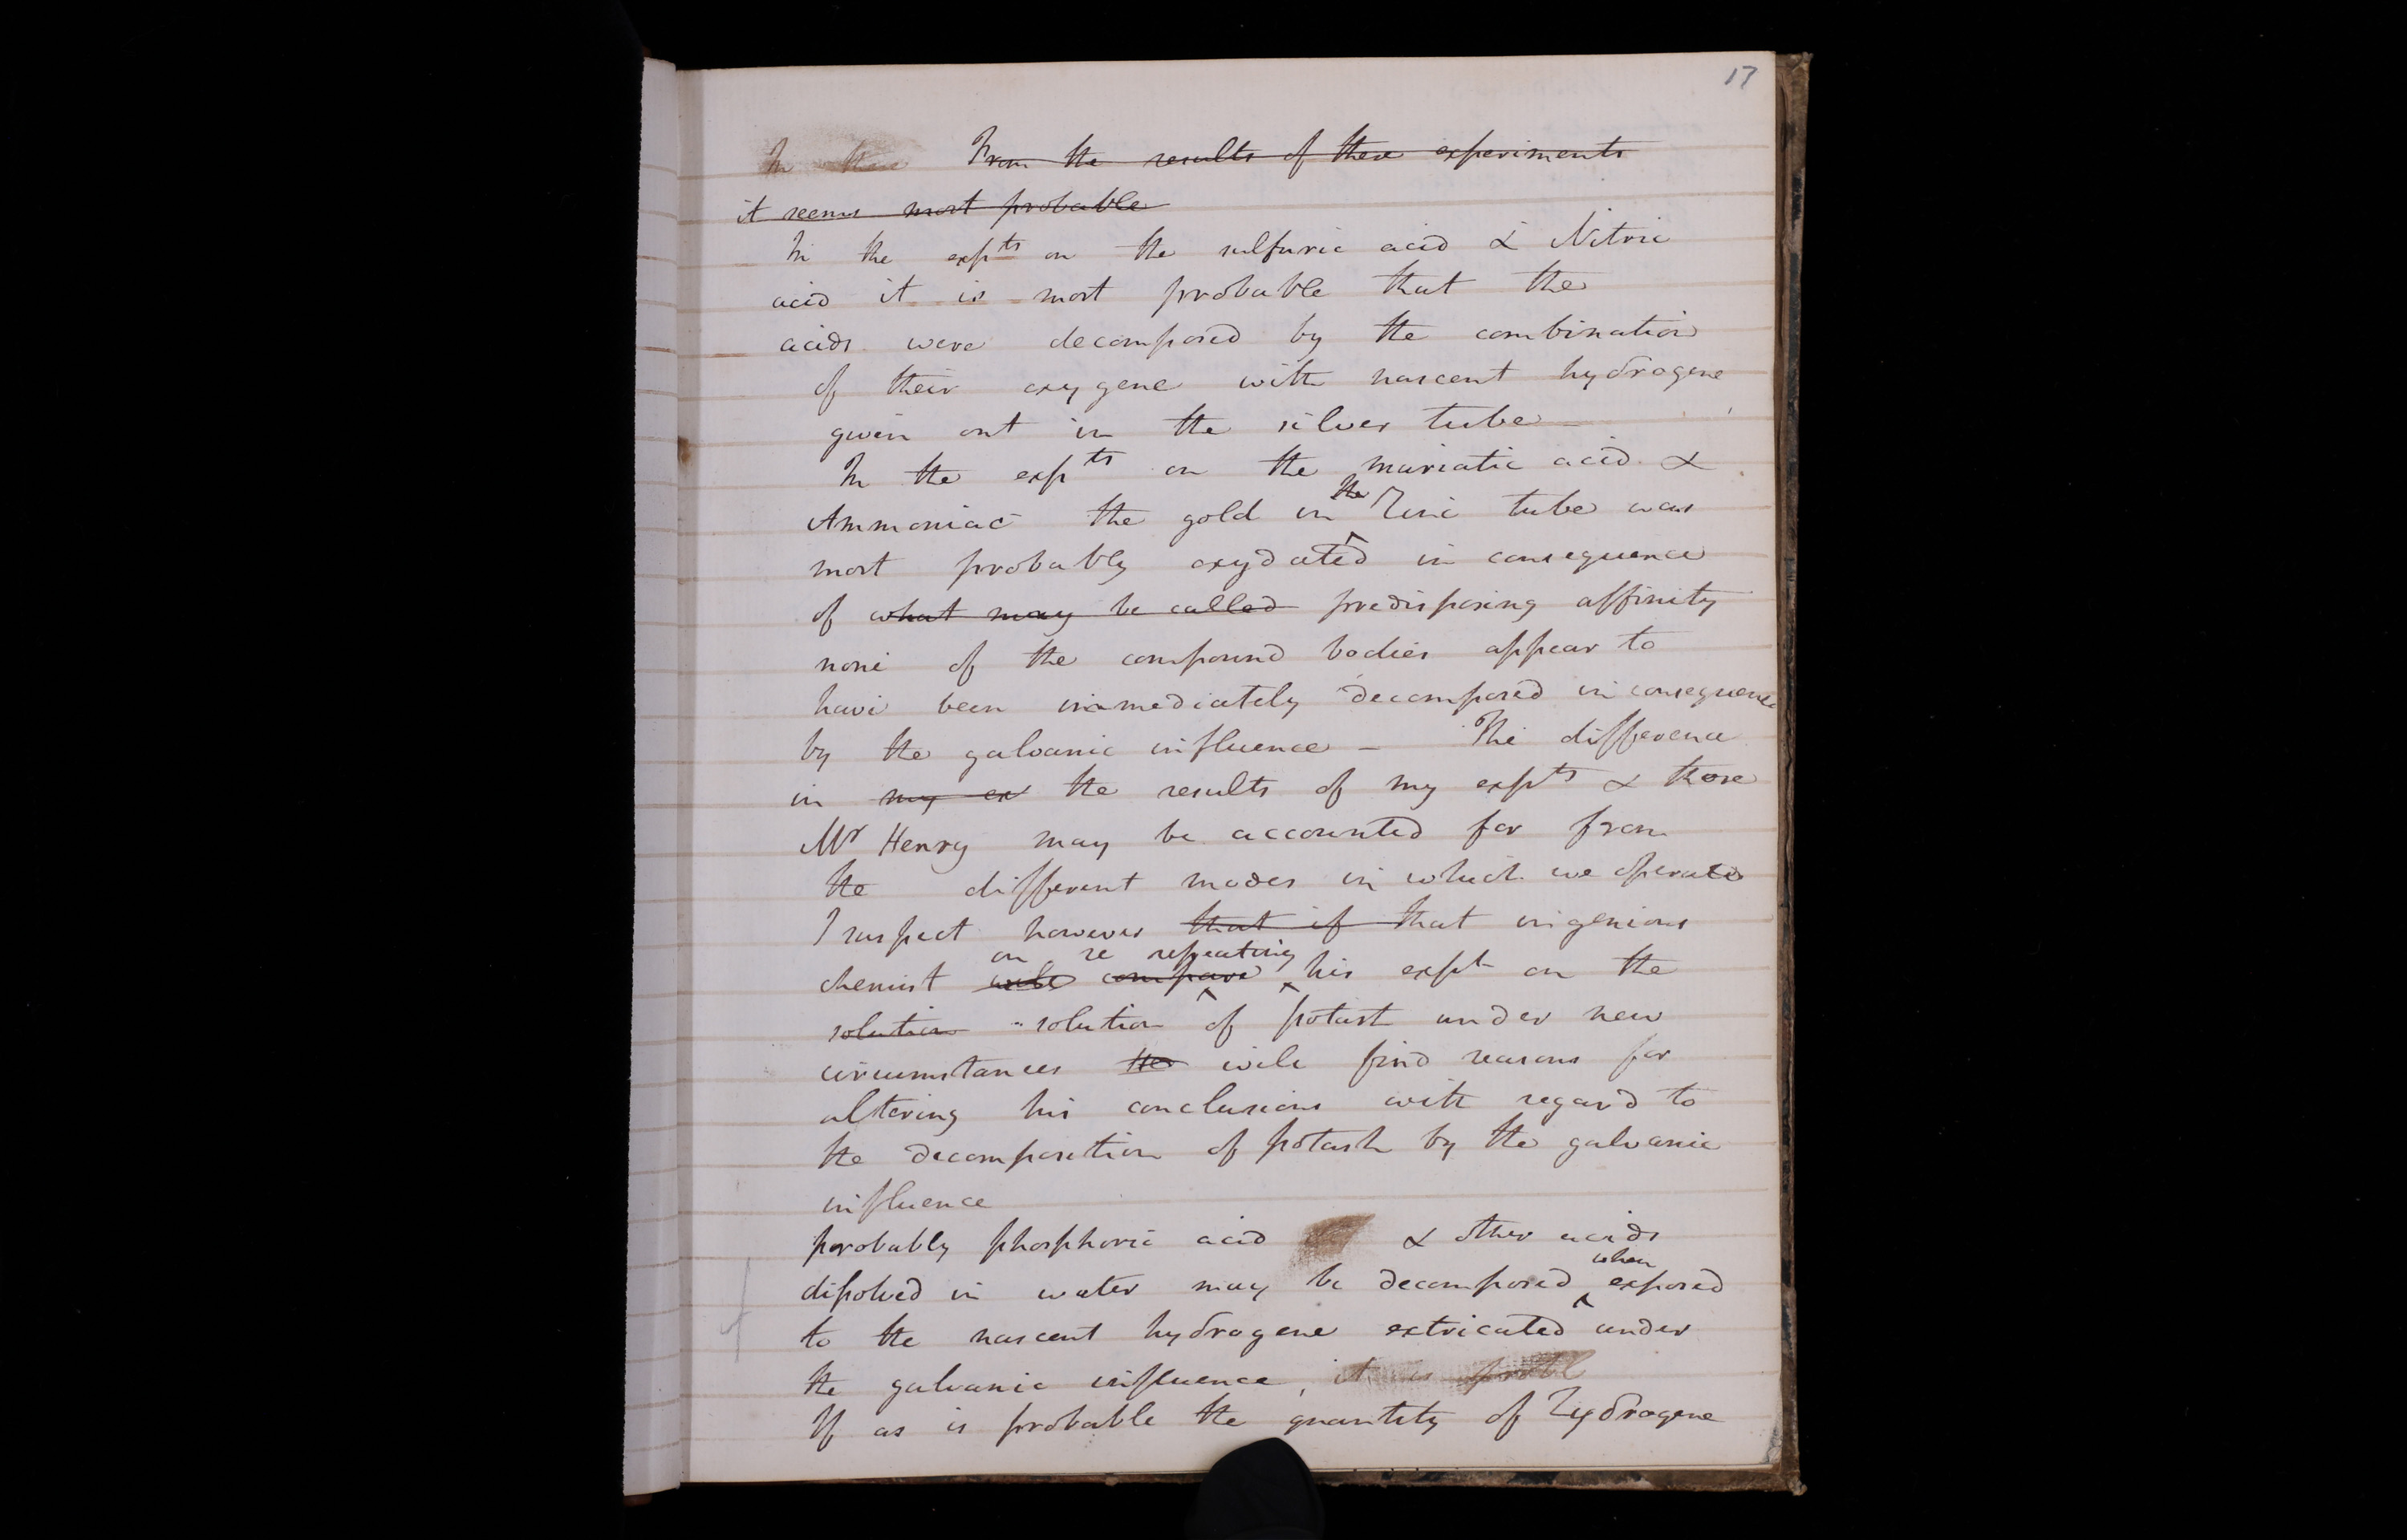 17
In these From the results of these experiments
it seems most probable
In the expts on the sulfuric acid & Nitric
acid it is most probable that the
acids were decomposed by the combination
of their oxygene with nascent hydrogene
given out in the silver tube
In the expts on the muriatic acid &
Ammoniac the gold in the Zinc tube was
most probably oxydated in consequence
of what may be called predisposing affinity
none of the compound bodies appear to
have been immediately decomposed in consequence
by the galvanic influence – The difference
in my ex the results of my expts & those
Mr Henry may be accounted for from
the different modes in which we operated
I suspect however that if that ingenious
on re repeating
chemist will compare his expt on the
solution solution of potash under new
circumstances he will find reasons for
altering his conclusions with regard to
the decomposition of potash by the galvanic
influence
probably phosphoric acid & other acids
when
dissolved in water may be decomposed exposed
to the nascent hydrogene extricated under
the galvanic influence, it is probl
If as is probable the quantity of hydrogene